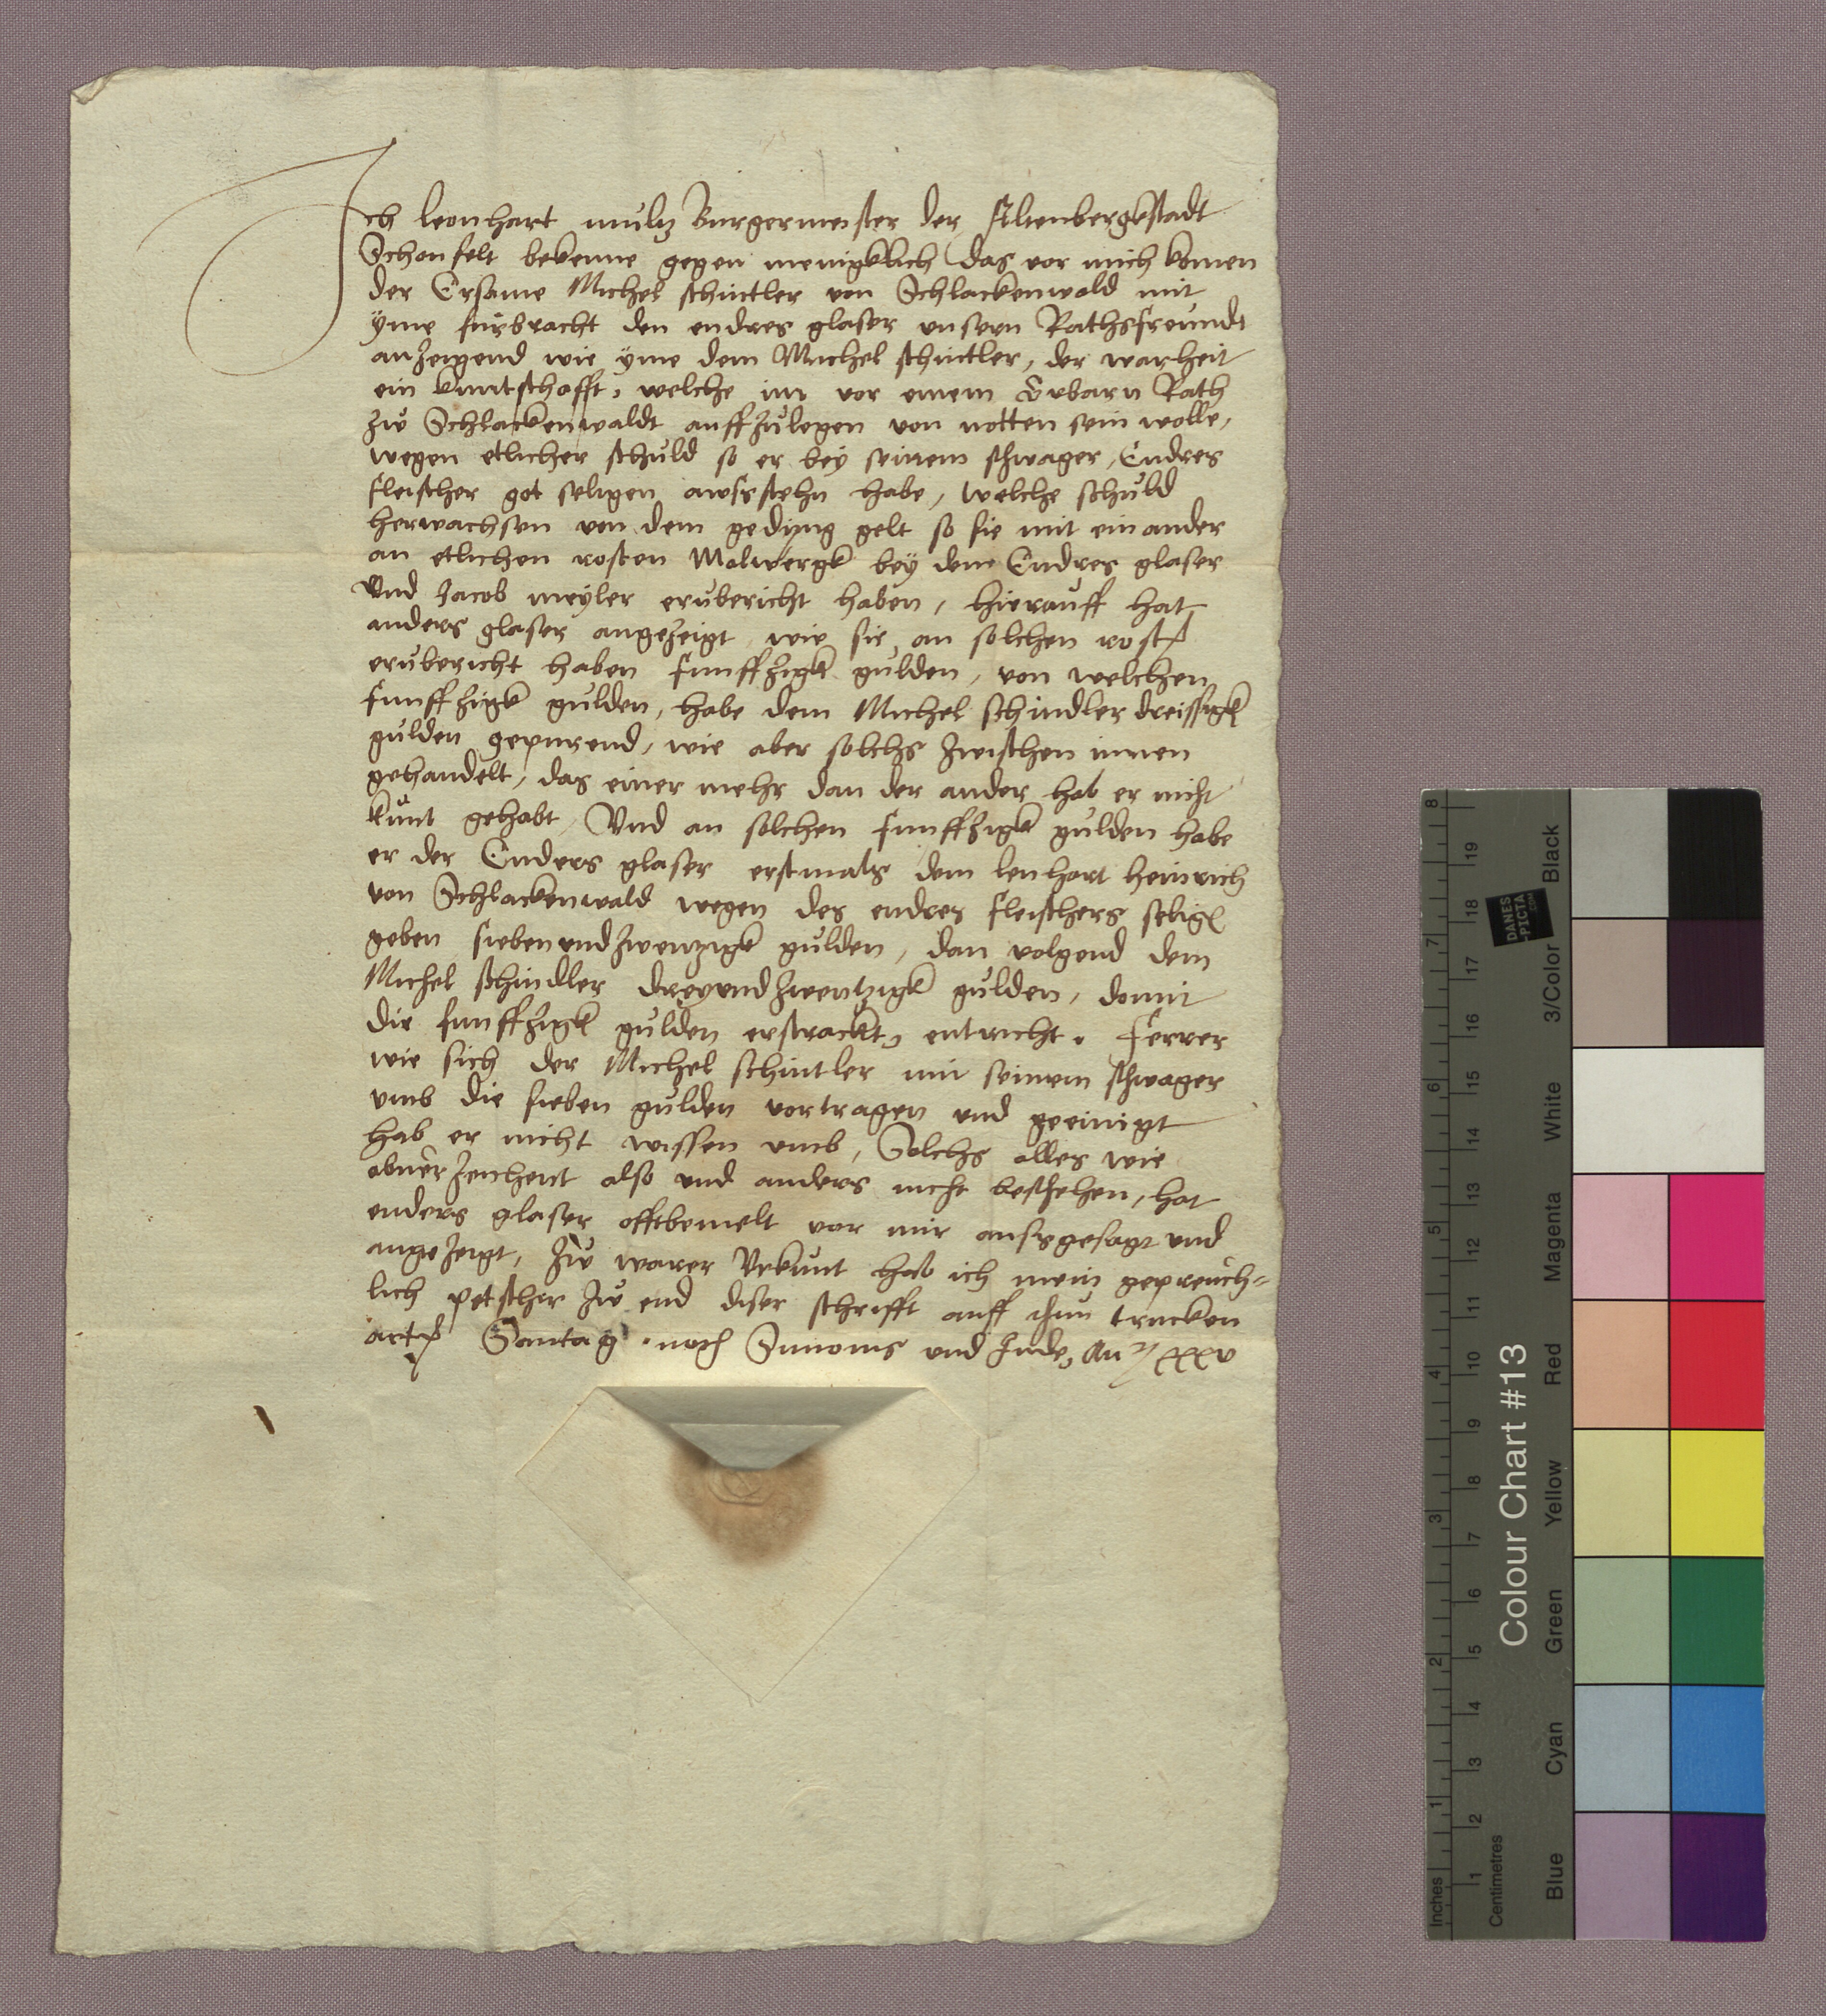 Ich leonhart mulz Burgermeister der Altenbergkstadt
Schonfelt bekenne gegen menigklich das vor mich komen
der Ersame Michel schintler von Schlackenwald mit
ÿme furbracht den endres glaser unsern Rathsfreundt
anzeigend wie ÿme dem Michel schintler, der warheit
ein kuntschafft, welche im vor einem Erbarn Rath
zw Schlackenwaldt auffzulegen von notten sein wolle,
wegen etlicher schuld so er bey seinem schwager, Endres
fleischer got seligen awssstehn habe, welche schuld
herwachsen von dem geding gelt so sie mit einander
an etlichen rosten Malwergk bey dem Endres glaser
Vnd Jacob meyler erubericht haben, hierauff hat
anders glaser angezeigt wie sie an solchen rost
erubericht haben funffzigk gulden, von welchen
funffzigk gulden, habe dem Michel schindler dreissigk
gulden gepurend, wie aber solchs zwischen innen
gehandelt, das einer mehr dan der ander hab er nicht
kunt gehabt, Vnd an solchen funffzigk gulden habe
er der Enders glaser erstmals dem lenhart heinrich
von Schlackenwald wegen des endres fleischers selig
geben siebenundzwenzigk gulden, dan volgend dem
Michel schindler dreyundzwentzigk gulden, domit
die funffzigk gulden erstrackt, entricht. Ferrer
wie sich der Michel schintler mit seinem schwager
vmb die sieben gulden vortragen und geeinigt
hab er nicht wissen vmb, Solchs alles wie
obuerzeichent also und anders nicht beschehen, hat
enders glaser offtbemelt vor mir aussgesagt und
angezeigt, Zw warer Vrkunt hab ich mein gepreuch-
lich petschir zw end diser schrifft auff thun trucken
Sontag noch Simonis und Jude, An xxxv
Colour Chart #13
DANES PICTA .COM
Inches 1 2 3 4 5 6 7 8
Centimetres 1 2 3 4 5 6 7 8 9 10 11 12 13 14 15 16 17 18 19
Blue Cyan Green Yellow Red Magenta White 3/Color Black